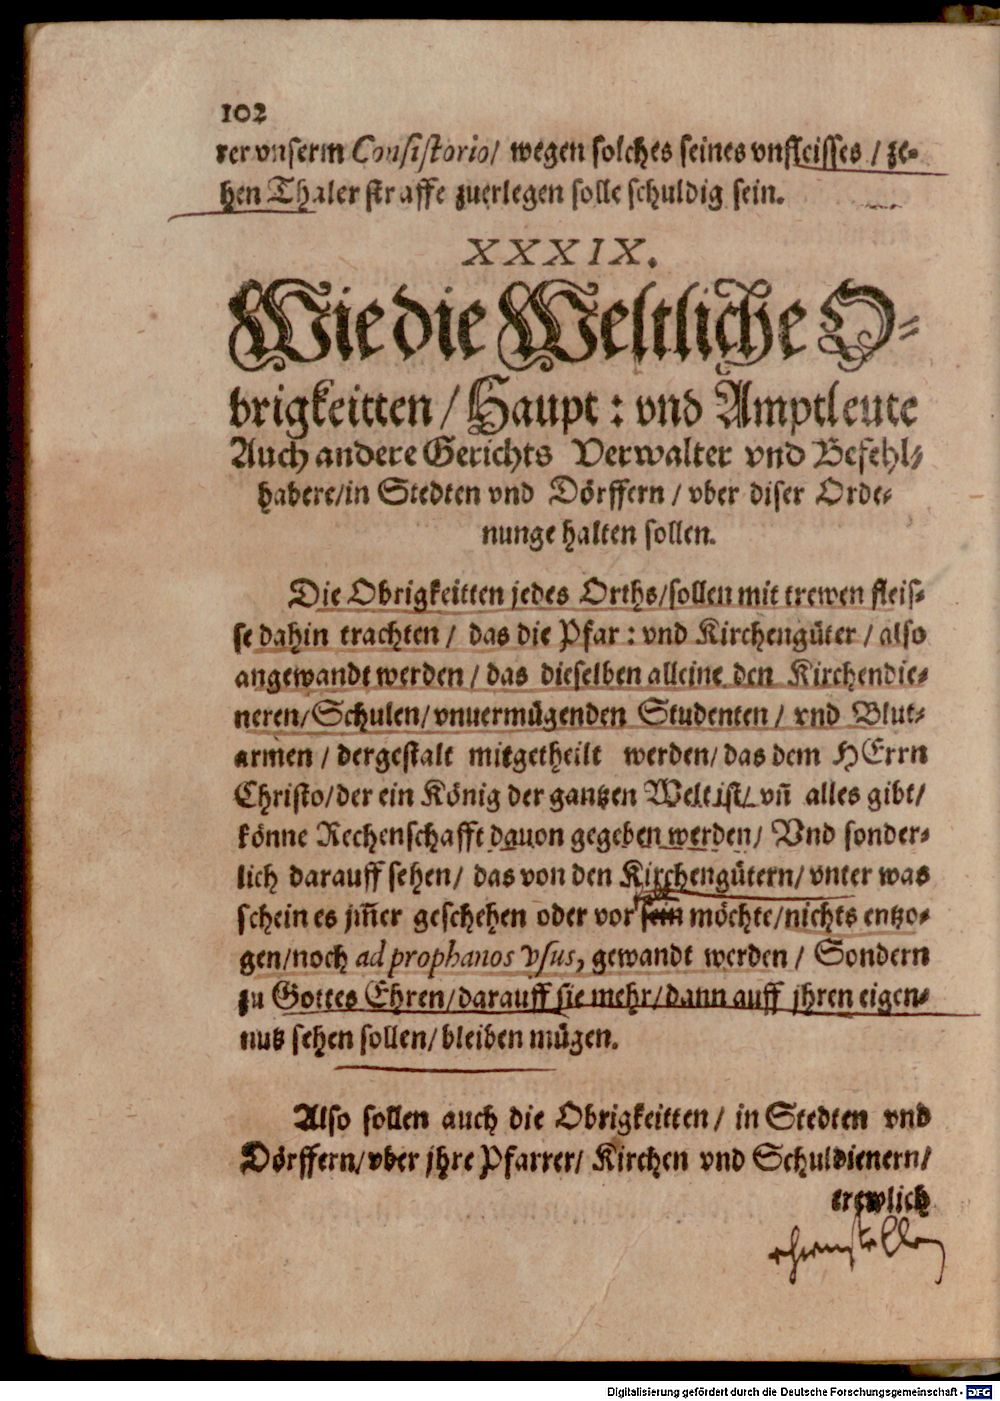 102
rer vnserm Consistorio/ wegen solches seines vnfleisses / ze-
hen Thaler straffe zuerlegen solle schuldig sein.
XXXIX.
Wie die Weltliche O-
brigkeitten / Haupt : vnd Amptleute
Auch andere Gerichts Verwalter vnd Befehl-
habere/in Stedten vnd Dörffern / vber diser Orde-
nunge halten sollen.
Die Obrigkeitten jedes Orths/sollen mit trewen fleis-
se dahin trachten / das die Pfar : vnd Kirchengüter / also
angewandt werden / das dieselben alleine den Kirchendie-
neren/Schulen/vnuermügenden Studenten / vnd Blut-
armen / dergestalt mitgetheilt werden/das dem HErrn
Christo/der ein König der gantzen Welt ist/ vñ alles gibt/
könne Rechenschafft dauon gegeben werden/ Vnd sonder-
lich darauff sehen/ das von den Kirchengütern/vnter was
schein es jm̄er geschehen oder vor sein möchte/nichts entzo-
gen/noch ad prophanos vsus, gewandt werden / Sondern
zu Gottes Ehren/darauff sie mehr/dann auff jhren eigen-
nutz sehen sollen/bleiben mügen.
Also sollen auch die Obrigkeitten / in Stedten vnd
Dörffern/vber jhre Pfarrer/ Kirchen vnd Schuldienern/
trewlich
Digitalisierung gefördert durch die Deutsche Forschungsgemeinschaft - DFG